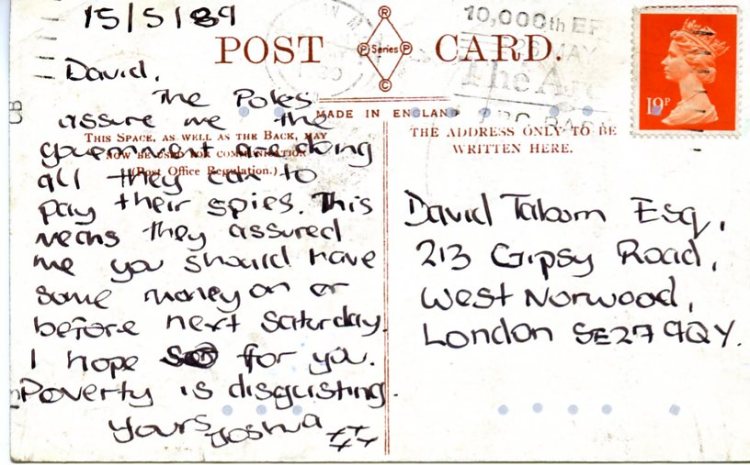 15/5/89
POST CARD.
R
P Series P
C
10,000th
MAY
The
19P
MADE IN ENGLAND
THIS SPACE, AS WELL AS THE BACK, MAY
NOW BE USED FOR COMMUNICATION
(Post Office Regulation.)
THE ADDRESS ONLY TO BE
WRITTEN HERE.
David,
The Poles
assure me the
government are doing
all they can to
pay their spies. This
means they assured
me you should have
some money on or
before next Saturday.
I hope so for you.
Poverty is disgusting.
Yours Joshua
David Taborn Esq,
213 Gipsy Road,
West Norwood,
London SE27 9QY.